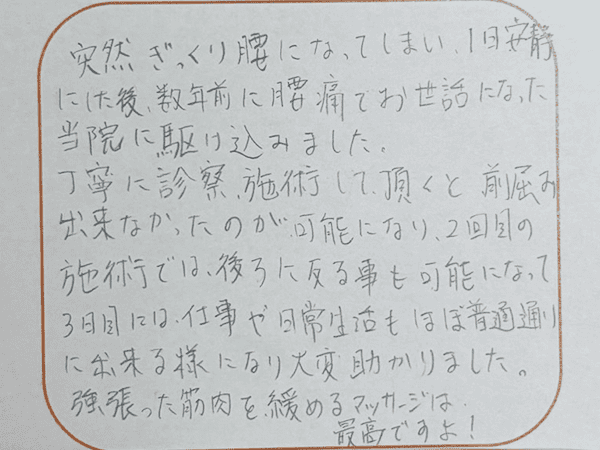 突然ぎっくり腰になってしまい、1日安静
にした後、数年前に腰痛でお世話になった
当院に駆け込みました。
丁寧に診察、施術して頂くと前屈み
出来なかったのが、可能になり、2回目の
施術では、後ろに反る事も可能になって
3日目には、仕事や日常生活もほぼ普通通り
に出来る様になり大変助かりました。
強張った筋肉を緩めるマッサージは、
最高ですよ！